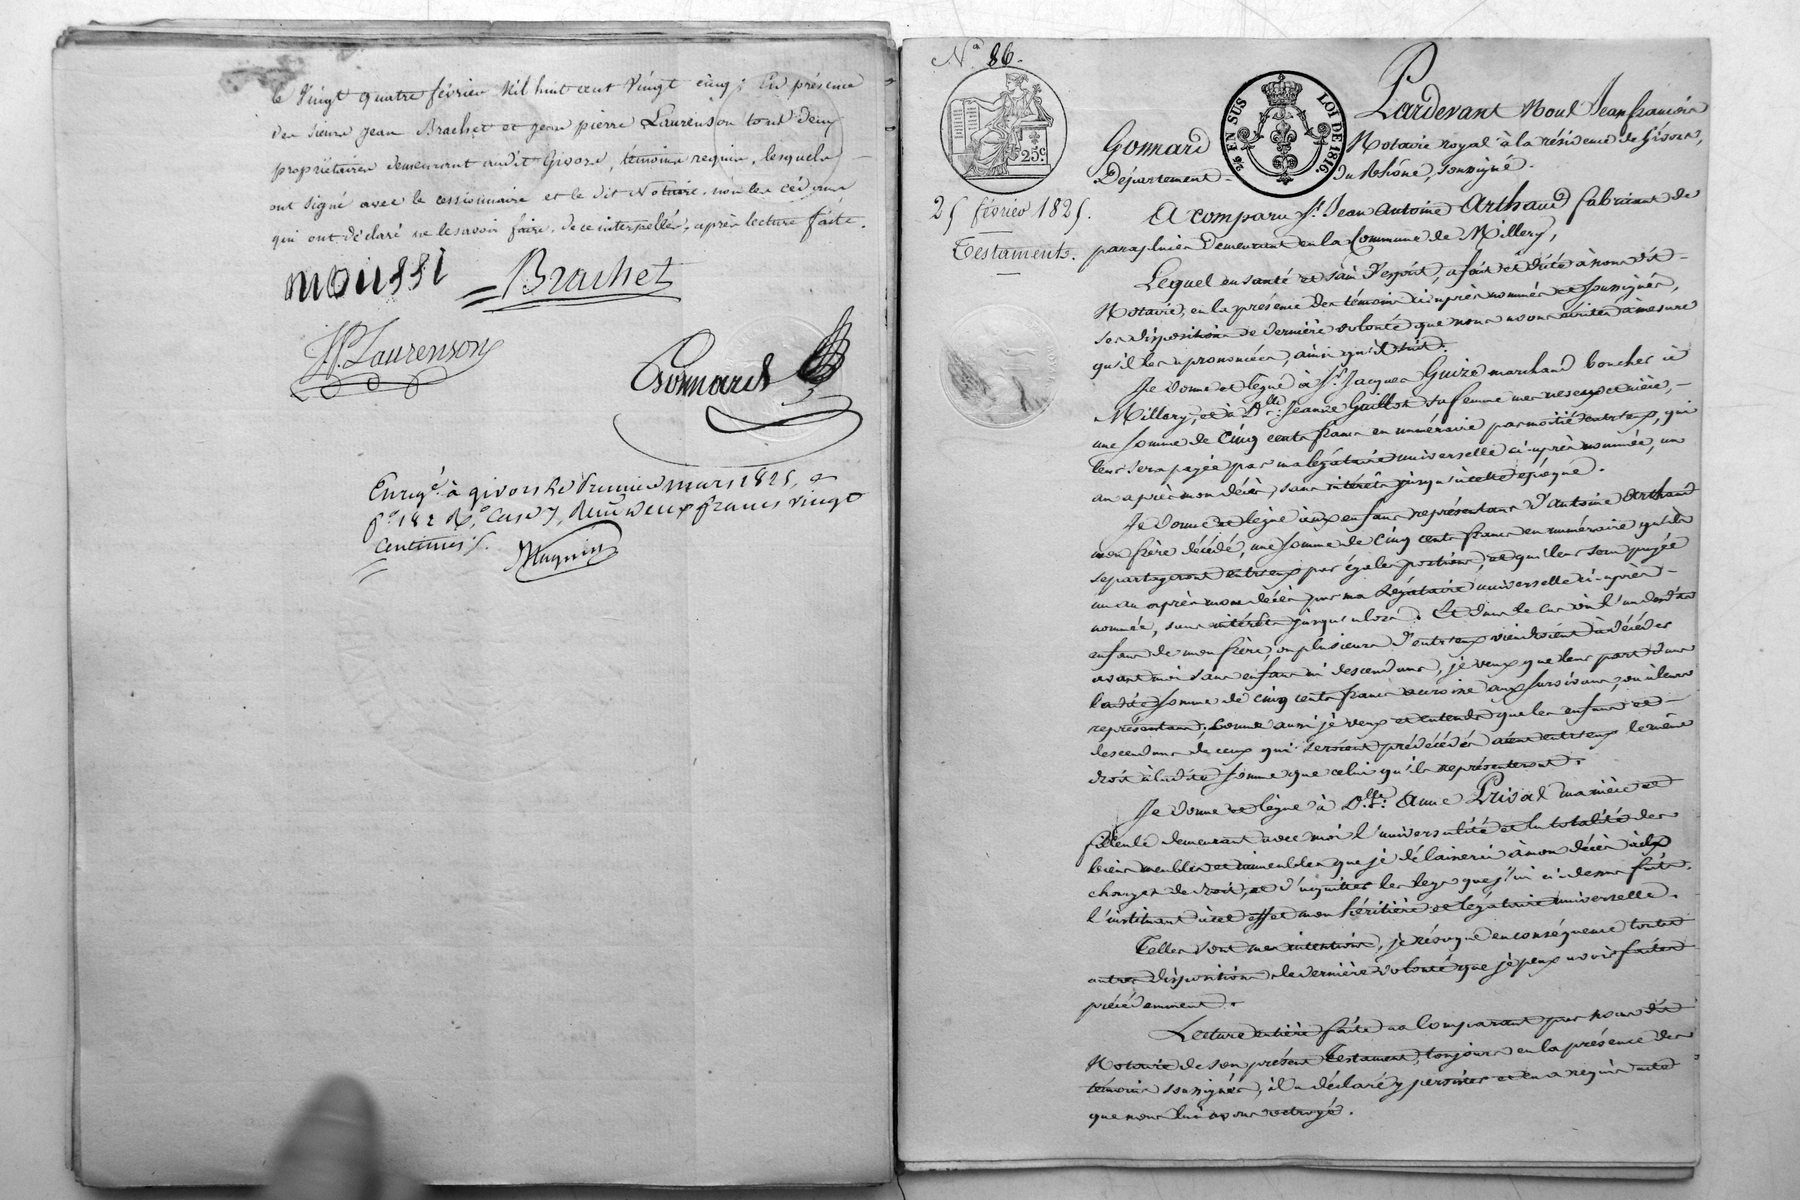 le vingt quatre février mil huit cent vingt cinq; En présence
des sieurs Jean Brachet et Jean pierre Laurenson tous deux
propriétaires demeurant audit Givors, témoins requis, lesquels
ont signé avec le cessionnaire et le dit Notaire, non les cédans
qui ont déclaré ne le savoir faire, de ce interpellés, après lecture faite.
moussi
Brachet
JP. Laurenson
Gonnard
Enregé. à givors le Premier mars 1825,
fo. 182 Ro. Case 7, Reçu Deux francs vingt
Centimes ./.
Magnin
No. 86.
25c.
26 EN SUS
LOI DE 1816.
25 février 1825.
Testament.
Pardevant Nous Jean françois
Gonnard Notaire royal à la résidence de Givors,
Département du Rhône, soussigné.
A comparu Sr. Jean Antoine Arthaud fabricant de
parapluies Demeurant en la Commune de Millery,
Lequel en santé et sain d'esprit, a fait et dicté à nous dit
Notaire, en la présence des témoins ci-après nommés et soussignés,
ses dispositions de dernière volonté que nous avons écrites à mesure
qu'il les a prononcées, ainsi qu'il suit:
Je donne et lègue à Sr. Jacques Guize marchand boucher à
Millery, et à Dlle. Jeanne Guillot sa femme mes neveu et nièce,
une somme de Cinq cents francs en numéraire par moitié entr'eux, qui
leur sera payée par ma légataire universelle ci-après nommée, un
an après mon décès, sans intérêts jusqu'à cette époque.
Je donne et lègue aux enfans représentans d'Antoine Arthaud
mon frère décédé, une somme de Cinq cents francs en numéraire qu'ils
se partageront entr'eux par égales portions, et qui leur sera payée
un an après mon décès par ma Légataire universelle ci-après
nommée, sans intérêts jusqu'alors. Et dans le cas où l'un desdits
enfans de mon frère, ou plusieurs d'entr'eux viendroient à décéder
avant moi sans enfans ni descendans, je veux que leur part dans
ladite somme de cinq cents francs accroisse aux survivans, ou à leurs
représentans; Comme aussi je veux et entends que les enfans et
descendans de ceux qui seroient prédécédés aient entr'eux le même
droit à ladite somme que celui qu'ils représenteront.
Je donne et lègue à Dlle. Anne Privat ma nièce et
filleule demeurant avec moi l'universalité et la totalité des
biens meubles et immeubles que je délaisserai à mon décès aux
charges de droit, et d'acquitter les legs que j'ai ci-dessus faits.
l'instituant à cet effet mon héritière et légataire universelle.
Telles sont mes intentions, je révoque en conséquence toutes
autres dispositions de dernière volonté que je peux avoir faites
précédemment.
Lecture entière faite au Comparant par nous dit
Notaire de son présent Testament, toujours en la présence des
témoins soussignés, il a déclaré y persister et en a requis acte
que nous lui avons octroyé.